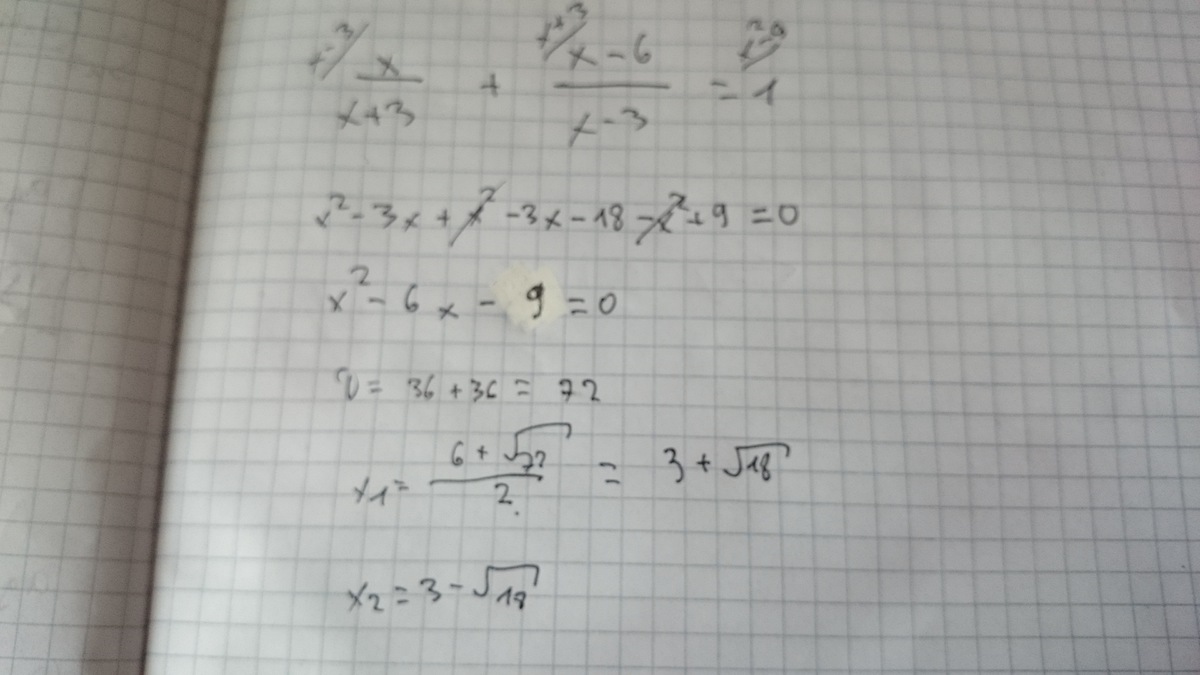 x-3/ x/(x+3) + x+3/ (x-6)/(x-3) = x²-9/ 1
x² - 3x + x² - 3x - 18 - x² + 9 = 0
x² - 6x - 9 = 0
D = 36 + 36 = 72
x1 = (6 + √72)/2 = 3 + √18
x2 = 3 - √18